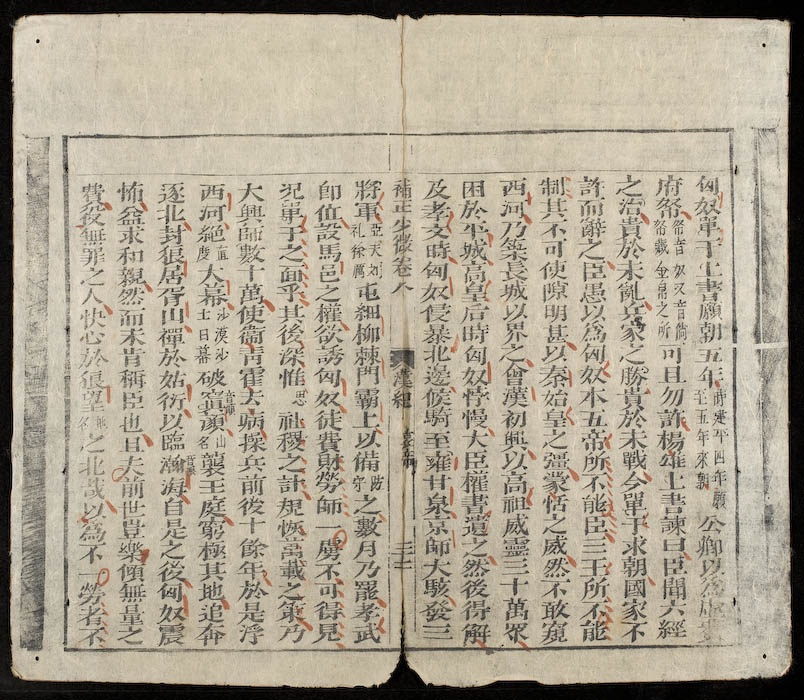 匈奴單于上書願朝五年時建平四年願至五年來朝公卿以爲虛費
府帑帑音奴又音儻帑藏金帛之所可且勿許楊雄上書諫曰臣聞六經
之治貴於未亂兵家之勝貴於未戰今單于求朝國家不
許而辭之臣愚以爲匈奴本五帝所不能臣三王所不能
制其不可使隙明甚以秦始皇之彊蒙恬之威然不敢窺
西河乃築長城以界之會漢初興以高祖威靈三十萬眾
困於平城高皇后時匈奴悖慢大臣權書遺之然後得解
及孝文時匈奴侵暴北邊候騎至雍甘泉京師大駭發三
補正少微卷八 漢紀 孝哀帝
將軍亞夫劉禮徐厲屯細柳棘門霸上以備防守之數月乃罷孝武
即位設馬邑之權欲誘匈奴徒費財勞師一虜不可得見
況單于之面乎其後深惟思社稷之計規恢萬載之策乃
大興師數十萬使衞靑霍去病操兵前後十餘年於是浮
西河絕直度大幕沙漠沙土曰幕破寘顏音顚山名襲王庭窮極其地追奔
逐北封狼居胥山禪於姑衍以臨瀚海音翰自是之後匈奴震
怖益求和親然而未肯稱臣也且夫前世豈樂傾無量之
費役無罪之人快心於狼望地名之北哉以爲不一勞者不